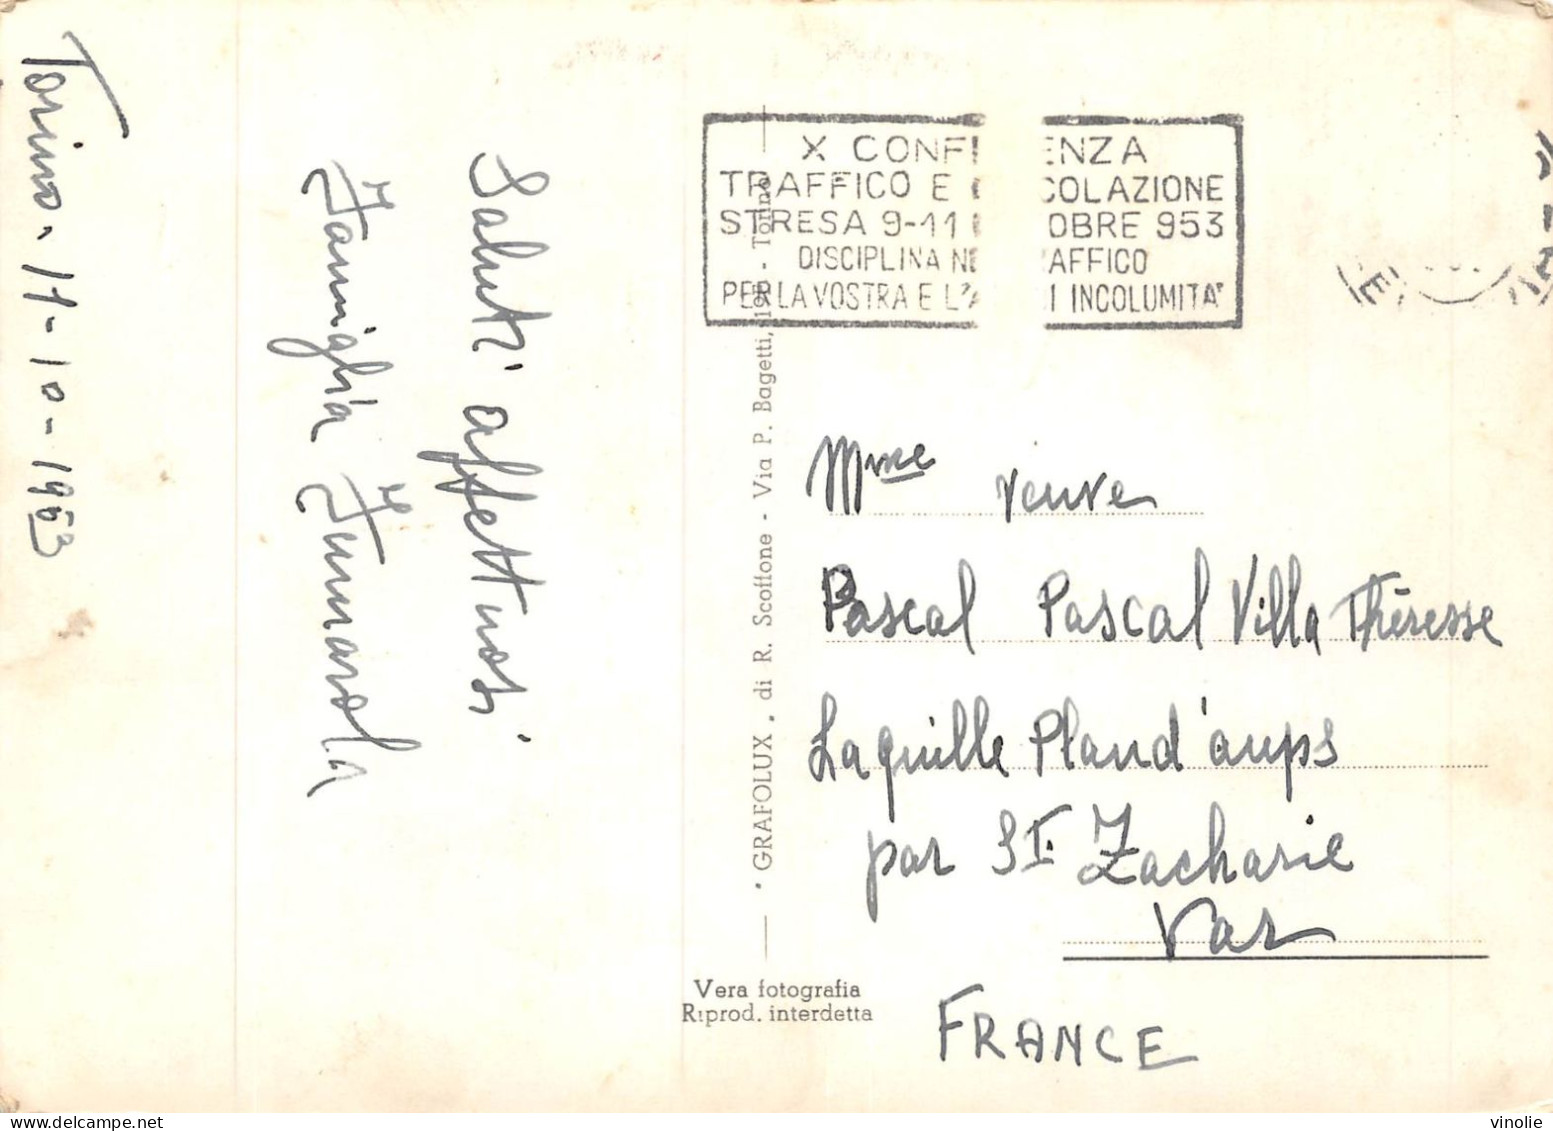 Torino, 11-10-1953
Saluti affettuosi
Famiglia Fumarola
X CONF ENZA
TRAFFICO E COLAZIONE
STRESA 9-11 OBRE 953
DISCIPLINA NE AFFICO
PER LA VOSTRA E L'A I INCOLUMITA'
• GRAFOLUX • di R. Scoffone - Via P. Bagetti, - Torino
Mme veuve
Pascal Pascal Villa Théresse
Laquille Pland'aups
par ST. Zacharie
Var
FRANCE
Vera fotografia
Riprod. interdetta
vinolie